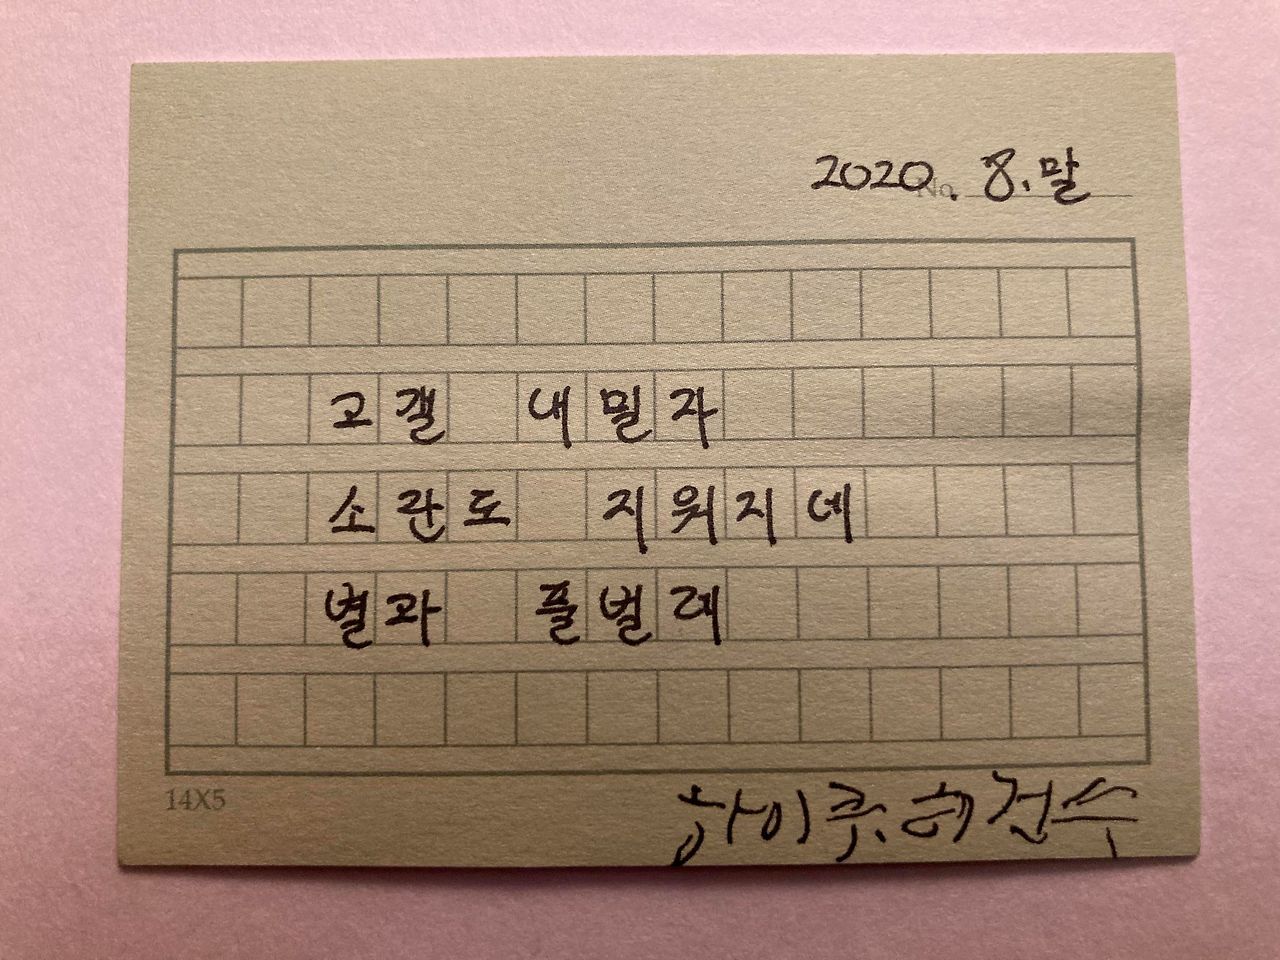 2020. 8. 말
No.
고갤 내밀자
소란도 지워지네
별과 풀벌레
14X5
하이쿠. 허건수